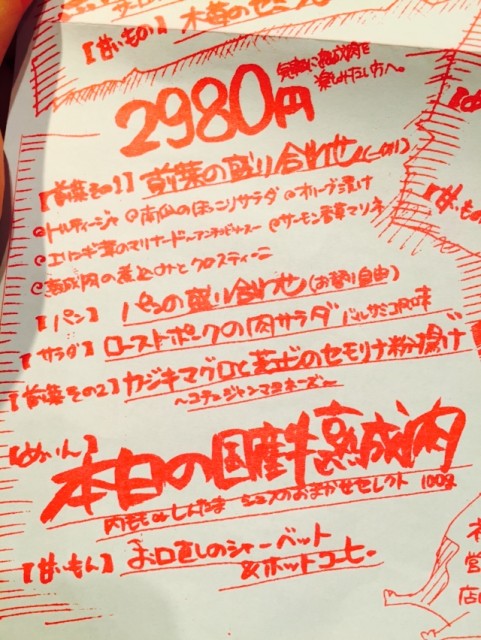 【甘いもの】木苺のセミフ
2980円
気軽に熟成肉を
楽しみたい方へ。
【前菜その1】前菜の盛り合わせ
@トルティージャ @南瓜のほっこりサラダ @オリーブ漬け
@エリンギ茸のマリナード～アンチョビ @サーモン香草マリネ
@熟成肉の煮込みとクロスティーニ
【パン】パンの盛り合わせ(お替り自由)
【サラダ】ローストポークの肉サラダ バルサミコ風味
【前菜その2】カジキマグロと芝エビのセモリナ粉揚げ
～コチュジャンマヨネーズ～
【めいん】
本日の国産牛熟成肉
内ももorしんたま シェフのおまかせセレクト 100g
【甘いもん】お口直しのシャーベット
&ホットコーヒー